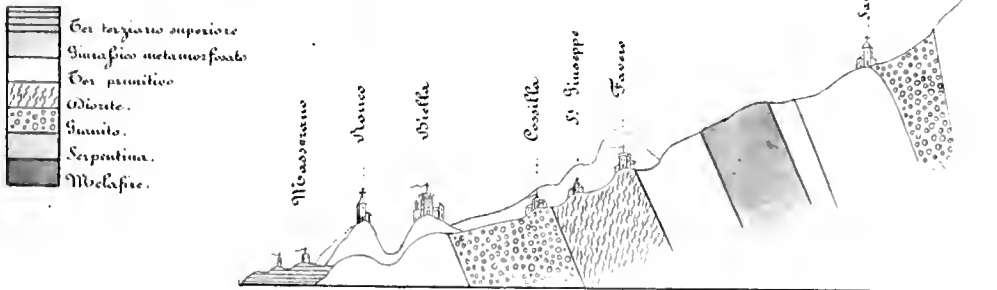 Ter terziario superiore
Giurassico metamorfosato
Ter primitivo
Diorite.
Granito.
Serpentina.
Melafire.
Masserano
Ronco
Biella
Cossilla
S! Giuseppe
Favero